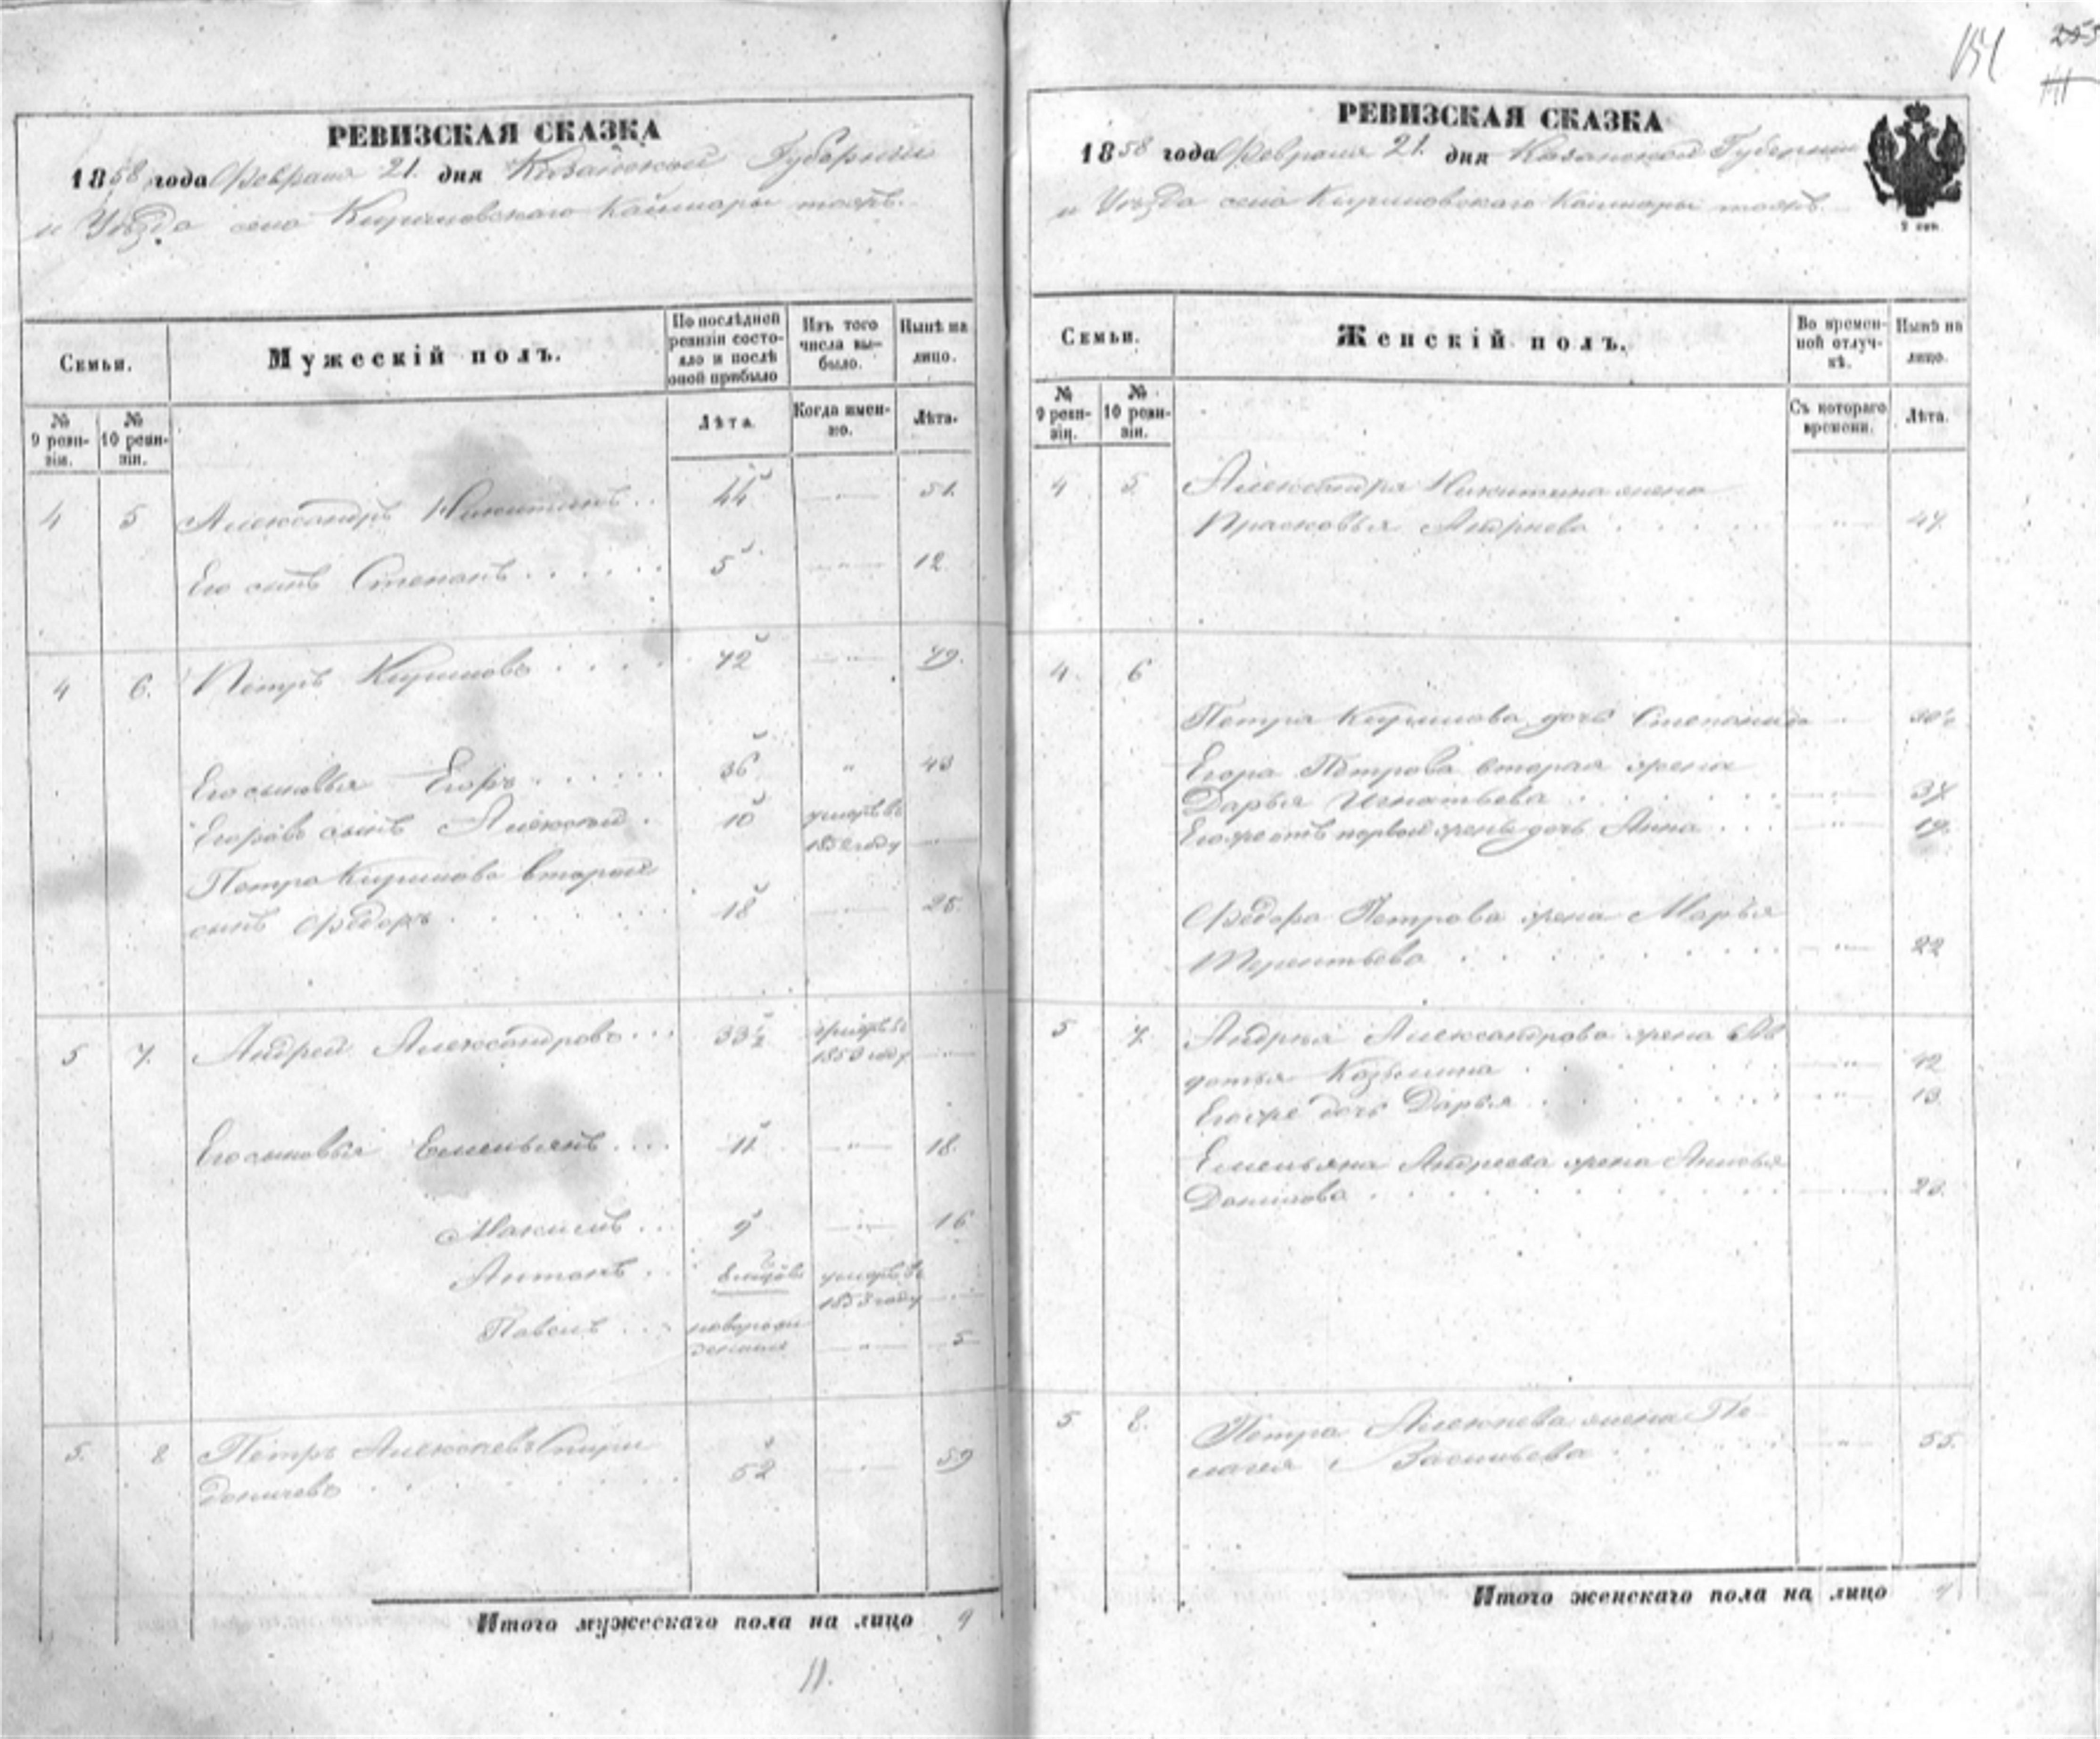 РЕВИЗСКАЯ СКАЗКА
1858 года Февраля 21. дня Казанской Губернии
и Уѣзда села Кириловскаго Каймары тожъ.
Семьи.
Мужескій полъ.
По послѣдней ревизіи состояло и послѣ оной прибыло
Изъ того числа выбыло.
Нынѣ на лицо.
№ 9 ревизіи.
№ 10 ревизіи.
Лѣта.
Когда именно.
Лѣта.
4 5 Александръ Никитинъ 44 51.
Его сынъ Степанъ 5 12.
4 6. Петръ Кириловъ 72 79.
Его сыновья Егоръ 36 " 43
Егоровъ сынъ Алексей 10 умеръ въ
1852 году
Петра Кирилова второй
сынъ Федоръ 18 25.
5 7. Андрей Александровъ 33½ умеръ въ
1850 году
Его сыновья Емельянъ 11 18.
Максимъ 9 16
Антонъ умеръ въ
1853 году
Павелъ новорож
денный 5
5. 8 Петръ Алексѣевъ Спири
доничевъ 52 59
Итого мужескаго пола на лицо 9
11.
РЕВИЗСКАЯ СКАЗКА
1858 года Февраля 21. дня Казанской Губернии
и Уѣзда села Кириловскаго Каймары тожъ.
Семьи.
Женскій полъ.
Во временной отлучкѣ.
Нынѣ на лицо.
№ 9 ревизіи.
№ 10 ревизіи.
Съ котораго времени.
Лѣта.
4 5. Александра Никитина жена
Прасковья Андрѣева 47.
4. 6
Петра Кирилова дочь Степанида
Егора Петрова вторая жена
Дарья Игнатьева 37.
Егоже отъ первой жены дочь Анна 19.
Федора Петрова жена Марья
Терентьева 22
5 7. Андрѣя Александрова жена Ав
дотья Козьмина 42
Егоже дочь Дарья 13.
Емельяна Андреева жена
Данилова 20.
5 8. Петра Алексѣева жена Пе
лагея Васильева 55.
Итого женскаго пола на лицо